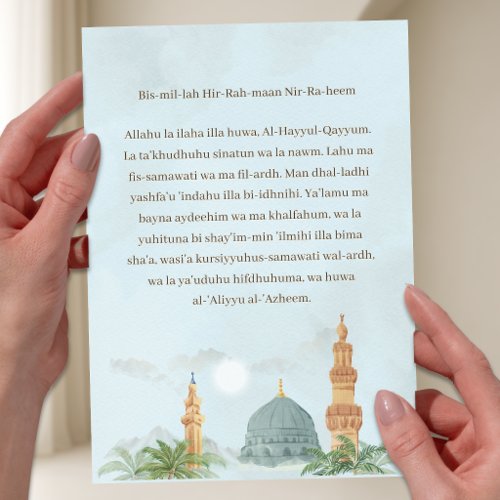 Bis-mil-lah Hir-Rah-maan Nir-Ra-heem
Allahu la ilaha illa huwa, Al-Hayyul-Qayyum.
La ta'khudhuhu sinatun wa la nawm. Lahu ma
fis-samawati wa ma fil-ardh. Man dhal-ladhi
yashfa'u 'indahu illa bi-idhnihi. Ya'lamu ma
bayna aydeehim wa ma khalfahum, wa la
yuhituna bi shay'im-min 'ilmihi illa bima
sha'a, wasi'a kursiyyuhus-samawati wal-ardh,
wa la ya'uduhu hifdhuhuma, wa huwa
al-'Aliyyu al-'Azheem.